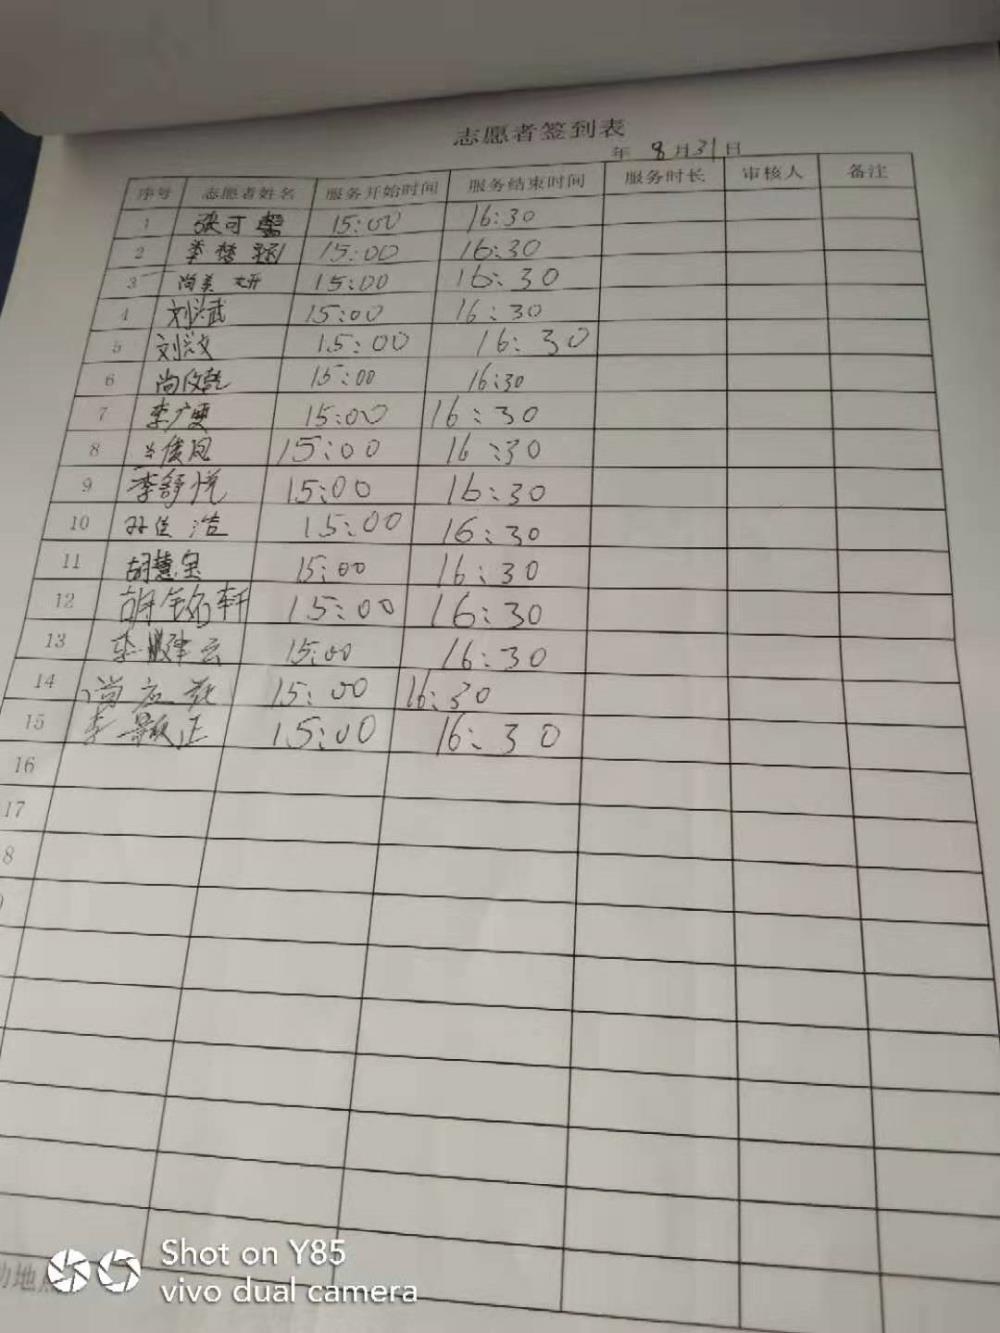 志愿者签到表
年 8月31日
序号 志愿者姓名 服务开始时间 服务结束时间 服务时长 审核人 备注
1 张可馨 15:00 16:30
2 李梦 15:00 16:30
3 尚美妍 15:00 16:30
4 刘洪武 15:00 16:30
5 刘汶 15:00 16:30
6 尚乾 15:00 16:30
7 李广 15:00 16:30
8 俊凤 15:00 16:30
9 李舒悦 15:00 16:30
10 孙佳浩 15:00 16:30
11 胡慧 15:00 16:30
12 胡铭轩 15:00 16:30
13 李云 15:00 16:30
14 尚 15:00 16:30
15 李正 15:00 16:30
16
17
8
动地点
Shot on Y85
vivo dual camera